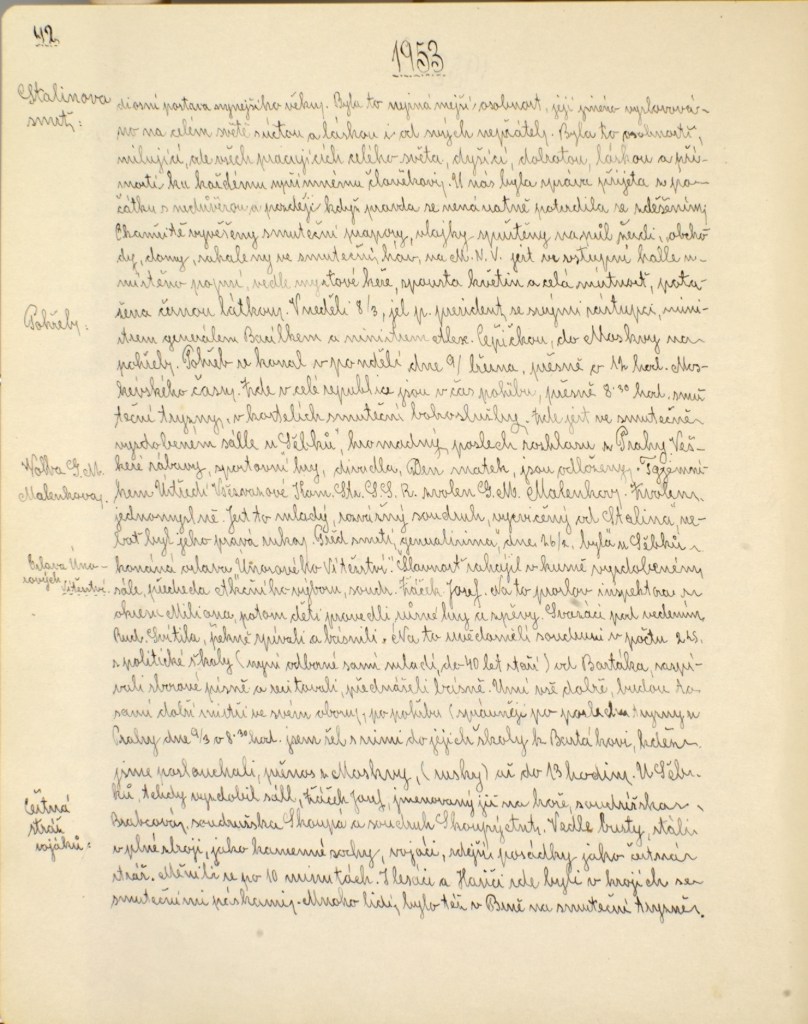 42
1953
Stalinova
smrt:
diosní postava nynějšího věku. Byla to nejznámější osobnost, její jméno vyslovová-
no na celém světě s úctou a láskou i od svých nepřátel. Byla to osobnost,
milující, ode všech pracujících celého světa, dýšící, dobrotou, láskou a pří-
mostí ku každému upřímnému člověkovi. U nás byla zpráva přijeta s po-
čátku s nedůvěrou a později když pravda se nenávatně potvrdila se zděšením,
Okamžitě vyvěšeny smuteční prapory, vlajky spuštěny na půl žerdi, obcho-
dy, domy, zahaleny ve smuteční háv, na M.N.V. jest ve vstupní halle u-
místěno poprsí, vedle myrtové keře, spousta květin a celá místnost, pota-
žena černou látkou. V neděli 8/3, jel p. president, se svými zástupci, mini-
Pohřeb:
strem generálem Bacílkem a ministrem Alex. Čepičkou, do Moskvy na
pohřeb. Pohřeb se konal v pondělí dne 9/ března, přesně o 12 hod. Mos-
kevského času. Zde v celé republice jsou v čas pohřbu, přesně 8.30 hod. smu-
teční tryzny, v kostelích smuteční bohoslužby. Zde jest ve smutečně
vyzdobeném sálle u Sébků", hromadný poslech rozhlasu z Prahy. Veš-
keré zábavy, sportovní hry, divadla, Den matek, jsou odloženy. Tajemní-
Volba G. M.
Malenkova.
kem Ústředí Všesvazové Kom. Str. S.S.R. zvolen G. M. Malenkov. Zvolen
jednomyslně. Jest to mladý, rozvážný soudruh, vycvičený od Stalina" ne-
boť byl jeho pravá ruka. Před smrtí, generalissima, dne 26/2, byla u Sébků-
Oslava Úno-
rových
Vítězství.
konána oslava Únorového Vítězství". Slavnost zahájil v krásně vyzdobeném
sále, předseda Akčního výboru, soudr. Žáček Josef. Na to proslov inspektora z
okresu Miliona, potom děti provedli různé hry a zpěvy. Svazáci pod vedením
Rud. Svitila, pěkně zpívali a básnili. Na to uvědomělí soudruzi v počtu 245.
s politické školy (nyní odborné samí mladí, do 40 let staří) od Bartáka, zazpí-
vali sborové písně a recitovali, přednášeli básně. Umí vše dobře, budou to
samí dobří mistři ve svém oboru, po pohřbu (správněji po poslechu tryzny z
Prahy dne 9/3 o 8.30 hod. jsem šel s nimi do jejich školy k Bartákovi, kdež
jsme poslouchali, přenos z Moskvy, (rusky) až do 13 hodiny. U Séb-
ků, tehdy vyzdobil sáll, Žáček Josef, jmenovaný již na hoře, soudružka
Čestná
stráž
vojáků:
Brabcová, soudružka Skoupá a soudruh Skoupý
Vedle busty, stáli
v plné stroji, jako kamenné sochy, vojáci, zdejší posádky jako čestná
stráž. Měnili se po 10 minutách.
a Hasiči zde byli v krojích se
smutečními páskami. Mnoho lidí, bylo též v Brně na smuteční tryzně.